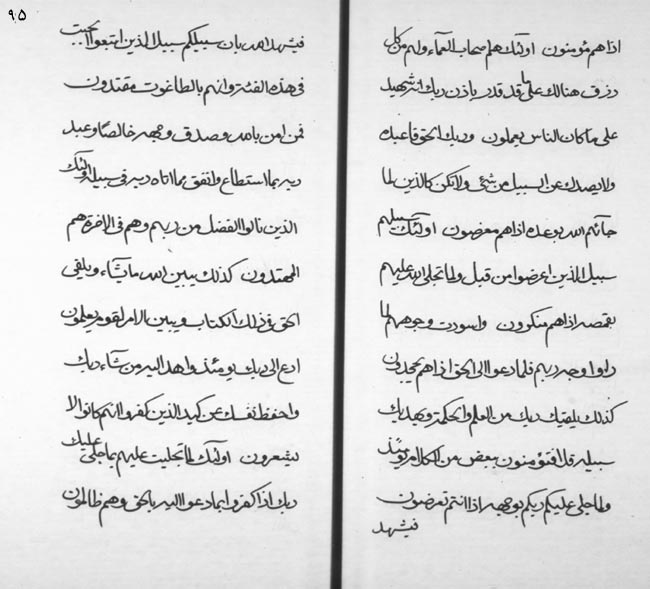 اذا هم مؤمنون اولئك هم اصحاب العماء ولهم من كل
رزق هنالك على ما قد قدر باذن ربك انه شهيد
على ما كان الناس يعملون وربك الحق فاعبده
ولا يصدك عن السبيل من شئ ولا تكن كالذين لما
جائهم الله بوعده اذا هم معرضون اولئك سبيلهم
سبيل الذين اعرضوا من قبل ولما تجلى الله عليهم
بقمصه اذا هم منكرون واسودت وجوههم لما
راوا وجه ربهم فلما دعوا الى الحق اذا هم يجحدون
كذلك يلقيك ربك من العلم والحكمة ويهديك
سبيله قل افتؤمنون ببعض من الكلام يومئذ
ولما جلى عليكم ربكم بوجهه اذا انتم تعرضون
فيشهد
٩٥
فيشهد الله بان سبيلكم سبيل الذين اتبعوا الجبت
فى هذه الفئة وانهم بالطاغوت مقتدون
فمن امن بالله وصدق وجهه خالصا وعبد
ربه بما استطاع وانفق مما اتاه ربه فى سبيله اولئك
الذين نالوا الفضل من ربهم وهم فى الاخرة هم
المهتدون كذلك يبين الله ما يشاء ويلقى
الحق فى ذلك الكتاب ويبين الامر لقوم يعلمون
ادع الى ربك يومئذ واهد اليه من شاء ربك
واحفظ نفسك عن كيد الذين كفروا انهم كانوا لا
يشعرون اولئك لما تجليت عليهم بما جلى عليك
ربك اذا كفروا بما دعوا اليه بالحق وهم ظالمون